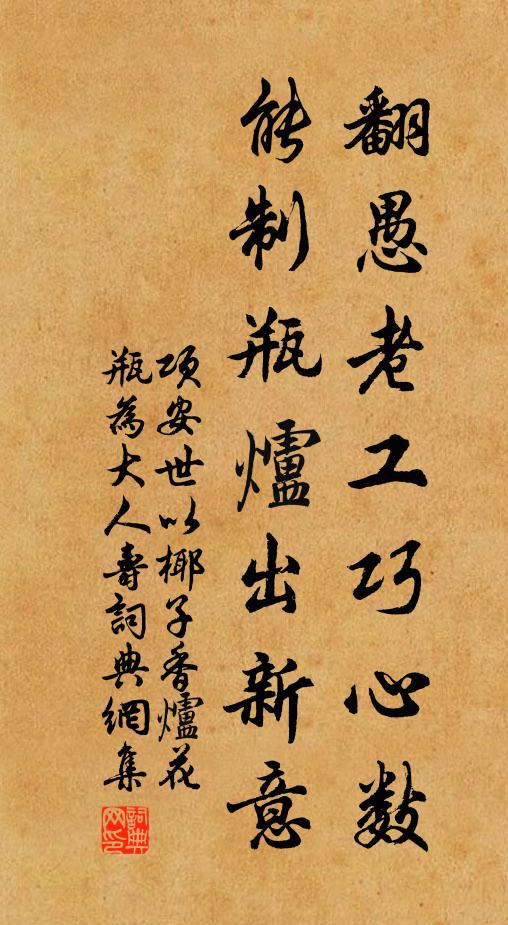 翻愚老工巧心数
能制瓶爐出新意
项安世以椰子香爐花
瓶為大人壽詞典網集
詞典网印